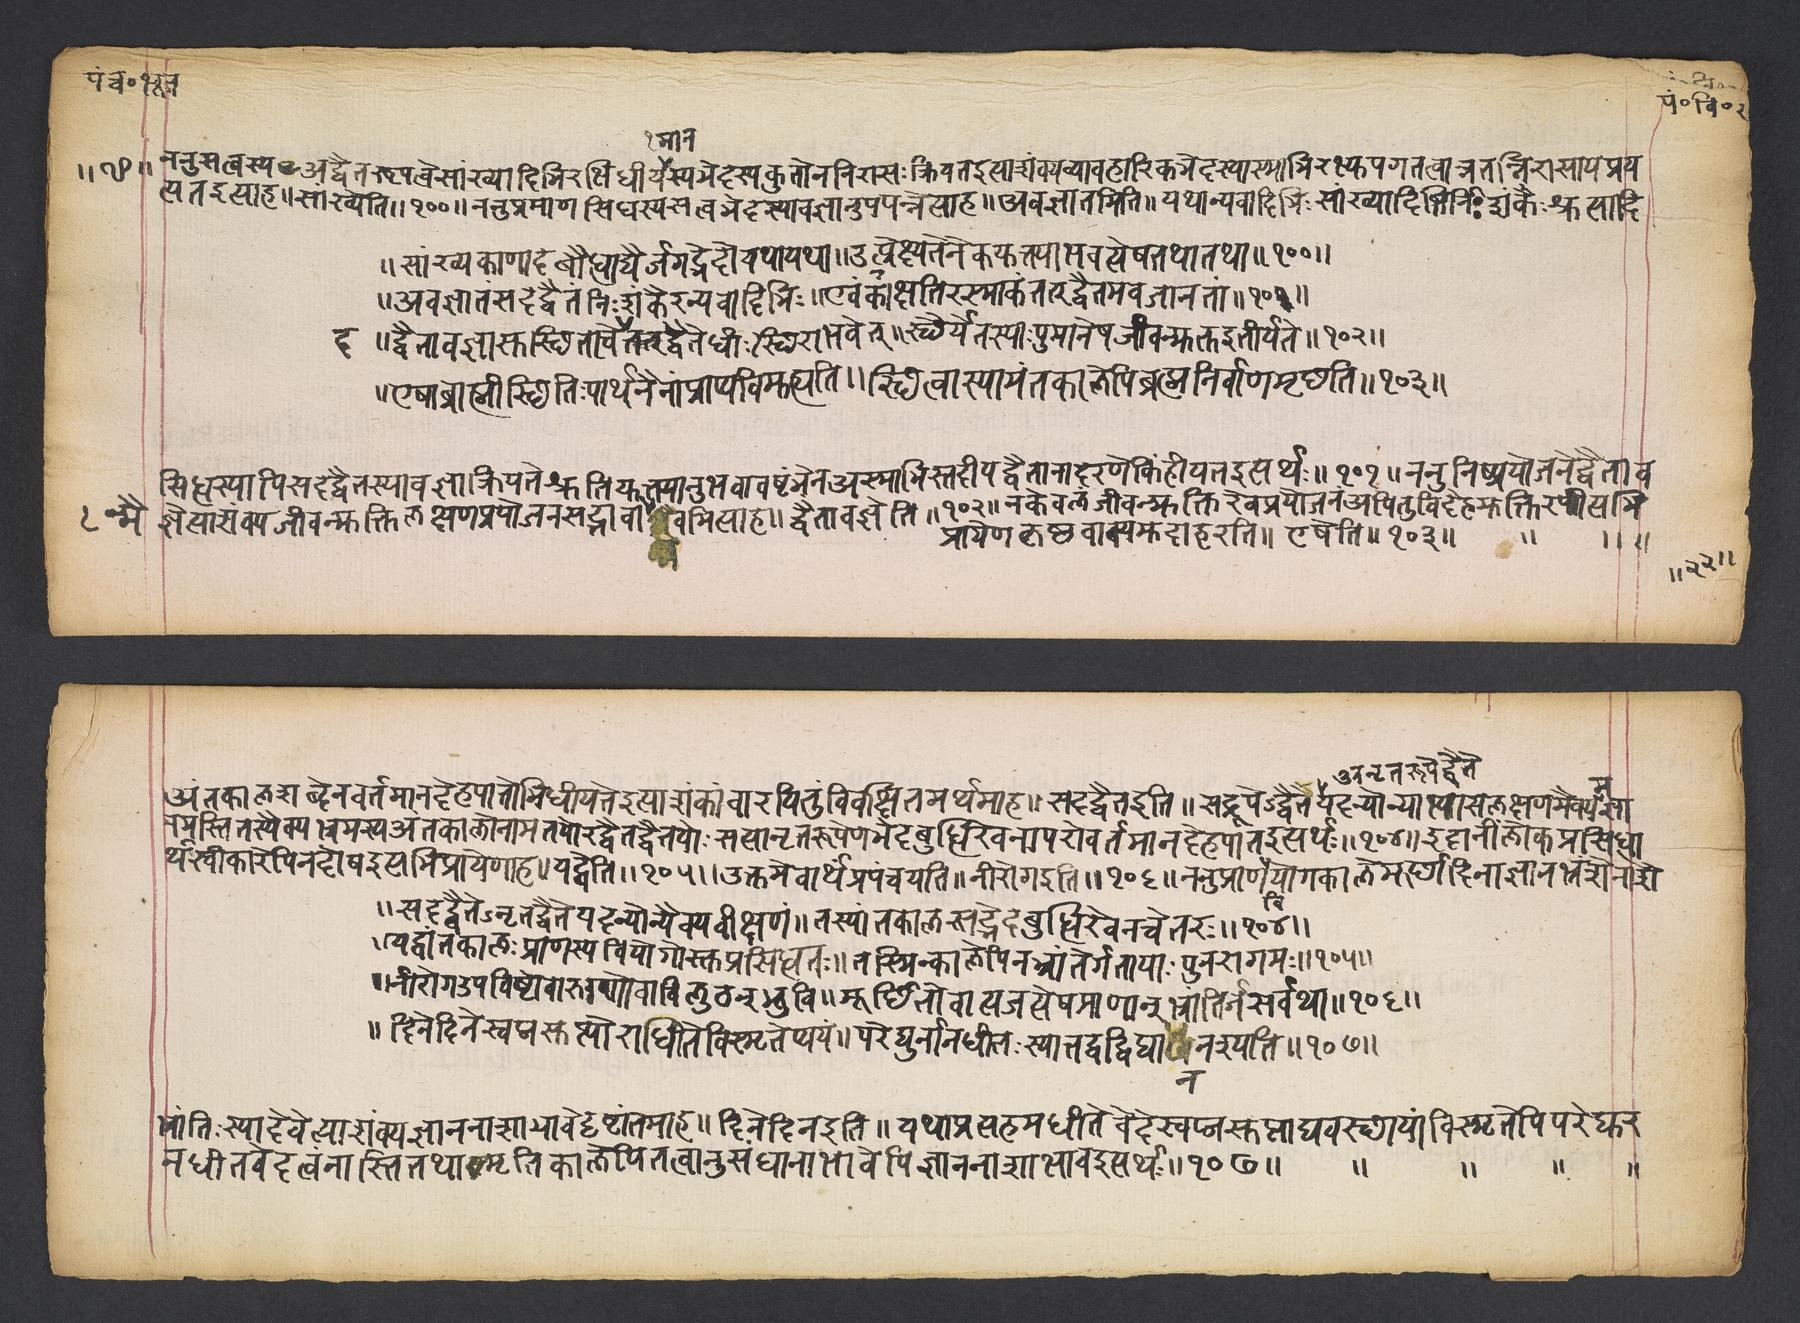 पंच॰ १२२
पं॰ वि॰ २
१मान
ननुसत्वस्य अद्वैतरूपत्वेसांख्यादिभिरभिधीयस्यभेदस्यकुतोननिरासः क्रियतइत्याशंक्यव्यावहारिकभेदस्यास्माभिरभ्युपगतत्वान्नतन्निरासायप्रय
त्यतइत्याह॥सांख्येति॥१००॥ननुप्रमाणसिद्धस्यसत्वभेदस्यावज्ञानुपपन्नेत्याह॥अवज्ञातमिति॥यथान्यवादिभिः सांख्यादिभिर्निःशंकैः श्रुत्यादि
॥सांख्यकाणादबौद्धाद्यैर्जगद्भेदोयथायथा॥उत्प्रेक्ष्यतेनेकयुक्त्याभवत्वेषतथातथा॥१००॥
॥अवज्ञातंसदद्वैतंनिःशंकैरन्यवादिभिः॥एवंकाक्षतिरस्माकंतद्द्वैतमवजानतां॥१०१॥
द ॥द्वैतावज्ञासुस्थिताचेदद्वैतेधीःस्थिराभवेत्॥स्थैर्येतस्याःपुमानेषजीवन्मुक्तइतीर्यते॥१०२॥
॥एषाब्राह्मीस्थितिःपार्थनैनांप्राप्यविमुह्यति॥स्थित्वास्यामंतकालेपिब्रह्मनिर्वाणमृछति॥१०३॥
सिद्धस्यापिसदद्वैतस्यावज्ञाक्रियतेश्रुतियुक्त्यानुभवावष्टंभेनअस्माभिस्तदीयद्वैतानादरणेकिंहीयतइत्यर्थः॥१०१॥ननुनिष्प्रयोजनेद्वैताव
ज्ञेत्याशंक्यजीवन्मुक्तिलक्षणप्रयोजनसद्भावान्मैवमित्याह॥द्वैतावज्ञेति॥१०२॥नकेवलंजीवन्मुक्तिरेवप्रयोजनंअपितुविदेहमुक्तिरपीत्यभि
प्रायेणकृष्णवाक्यमुदाहरति॥ एषेति॥१०३॥ ॥ ॥॥
॥२२॥
ऽनृतरूपेद्वैते
अंतकालशब्देनवर्तमानदेहपातोभिधीयतेइत्याशंकांवारयितुंविवक्षितमर्थमाह॥सदद्वैतइति॥सद्रूपेऽद्वैतेयदन्योन्याध्यासलक्षणमैक्यज्ञा
नमस्तितस्यैक्यभ्रमस्यअंतकालोनामतयोरद्वैतद्वैतयोःसत्यानृतरूपेणभेदबुद्धिरेवनापरोवर्तमानदेहपातइत्यर्थः॥१०४॥इदानींलोकप्रसिद्धा
र्थस्वीकारेपिनदोषइत्यभिप्रायेणाह॥यद्वेति॥१०५॥उक्तमेवार्थंप्रपंचयति॥नीरोगइति॥१०६॥ननुप्राणवियोगकालेमूर्छादिनाज्ञाननाशे
॥सदद्वैतेऽनृतद्वैतेयदन्योन्यैक्यवीक्षणं॥तस्यांतकालस्तद्भेदबुद्धिरेवनचेतरः॥१०४॥
॥यद्वांतकालःप्राणस्यवियोगोस्तुप्रसिद्धितः॥तस्मिन्कालेपिनभ्रांतेर्गतायाःपुनरागमः॥१०५॥
॥नीरोगउपविष्टोवारुग्णोवाविलुठन्भुवि॥मूर्छितोवात्यजत्वेषप्राणान्भ्रांतिर्नसर्वथा॥१०६॥
॥दिनेदिनेस्वप्नसुप्त्योरधीतेविस्मृतेप्ययं॥परेद्युर्नानधीतःस्यात्तद्वद्विद्याननश्यति॥१०७॥
न
भ्रांतिःस्यादेवेत्याशंक्यज्ञाननाशाभावेदृष्टांतमाह॥दिनेदिनइति॥यथाप्रत्यहमधीतेवेदेस्वप्नसुप्त्याद्यवस्थायांविस्मृतेपिपरेद्युर
नधीतवेदत्वंनास्तितथामृतिकालेपितत्वानुसंधानाभावेपिज्ञाननाशाभावइत्यर्थः॥१०७॥ ॥ ॥ ॥ ॥